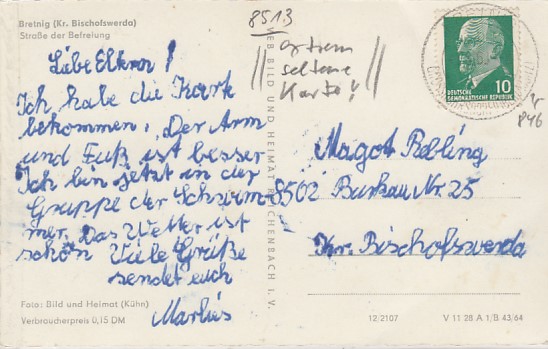 Bretnig (Kr. Bischofswerda)
Straße der Befreiung
8513
extrem
seltene
Karte!
Liebe Eltern!
Ich habe die Kart
bekommen, Der Arm
und Fuß ist besser
Ich bin jetzt in der
Gruppe der Schwim-
mer. Das Wetter ist
schön Viele Grüße
sendet euch
Marlies
Foto: Bild und Heimat (Kühn)
Verbraucherpreis 0,15 DM
VEB BILD UND HEIMAT REICHENBACH I. V.
10
DEUTSCHE
DEMOKRATISCHE REPUBLIK
846
Magot Rebling
8502 Burkau Nr. 25
Kr. Bischofswerda
12/2107
V 11 28 A 1/B 43/64